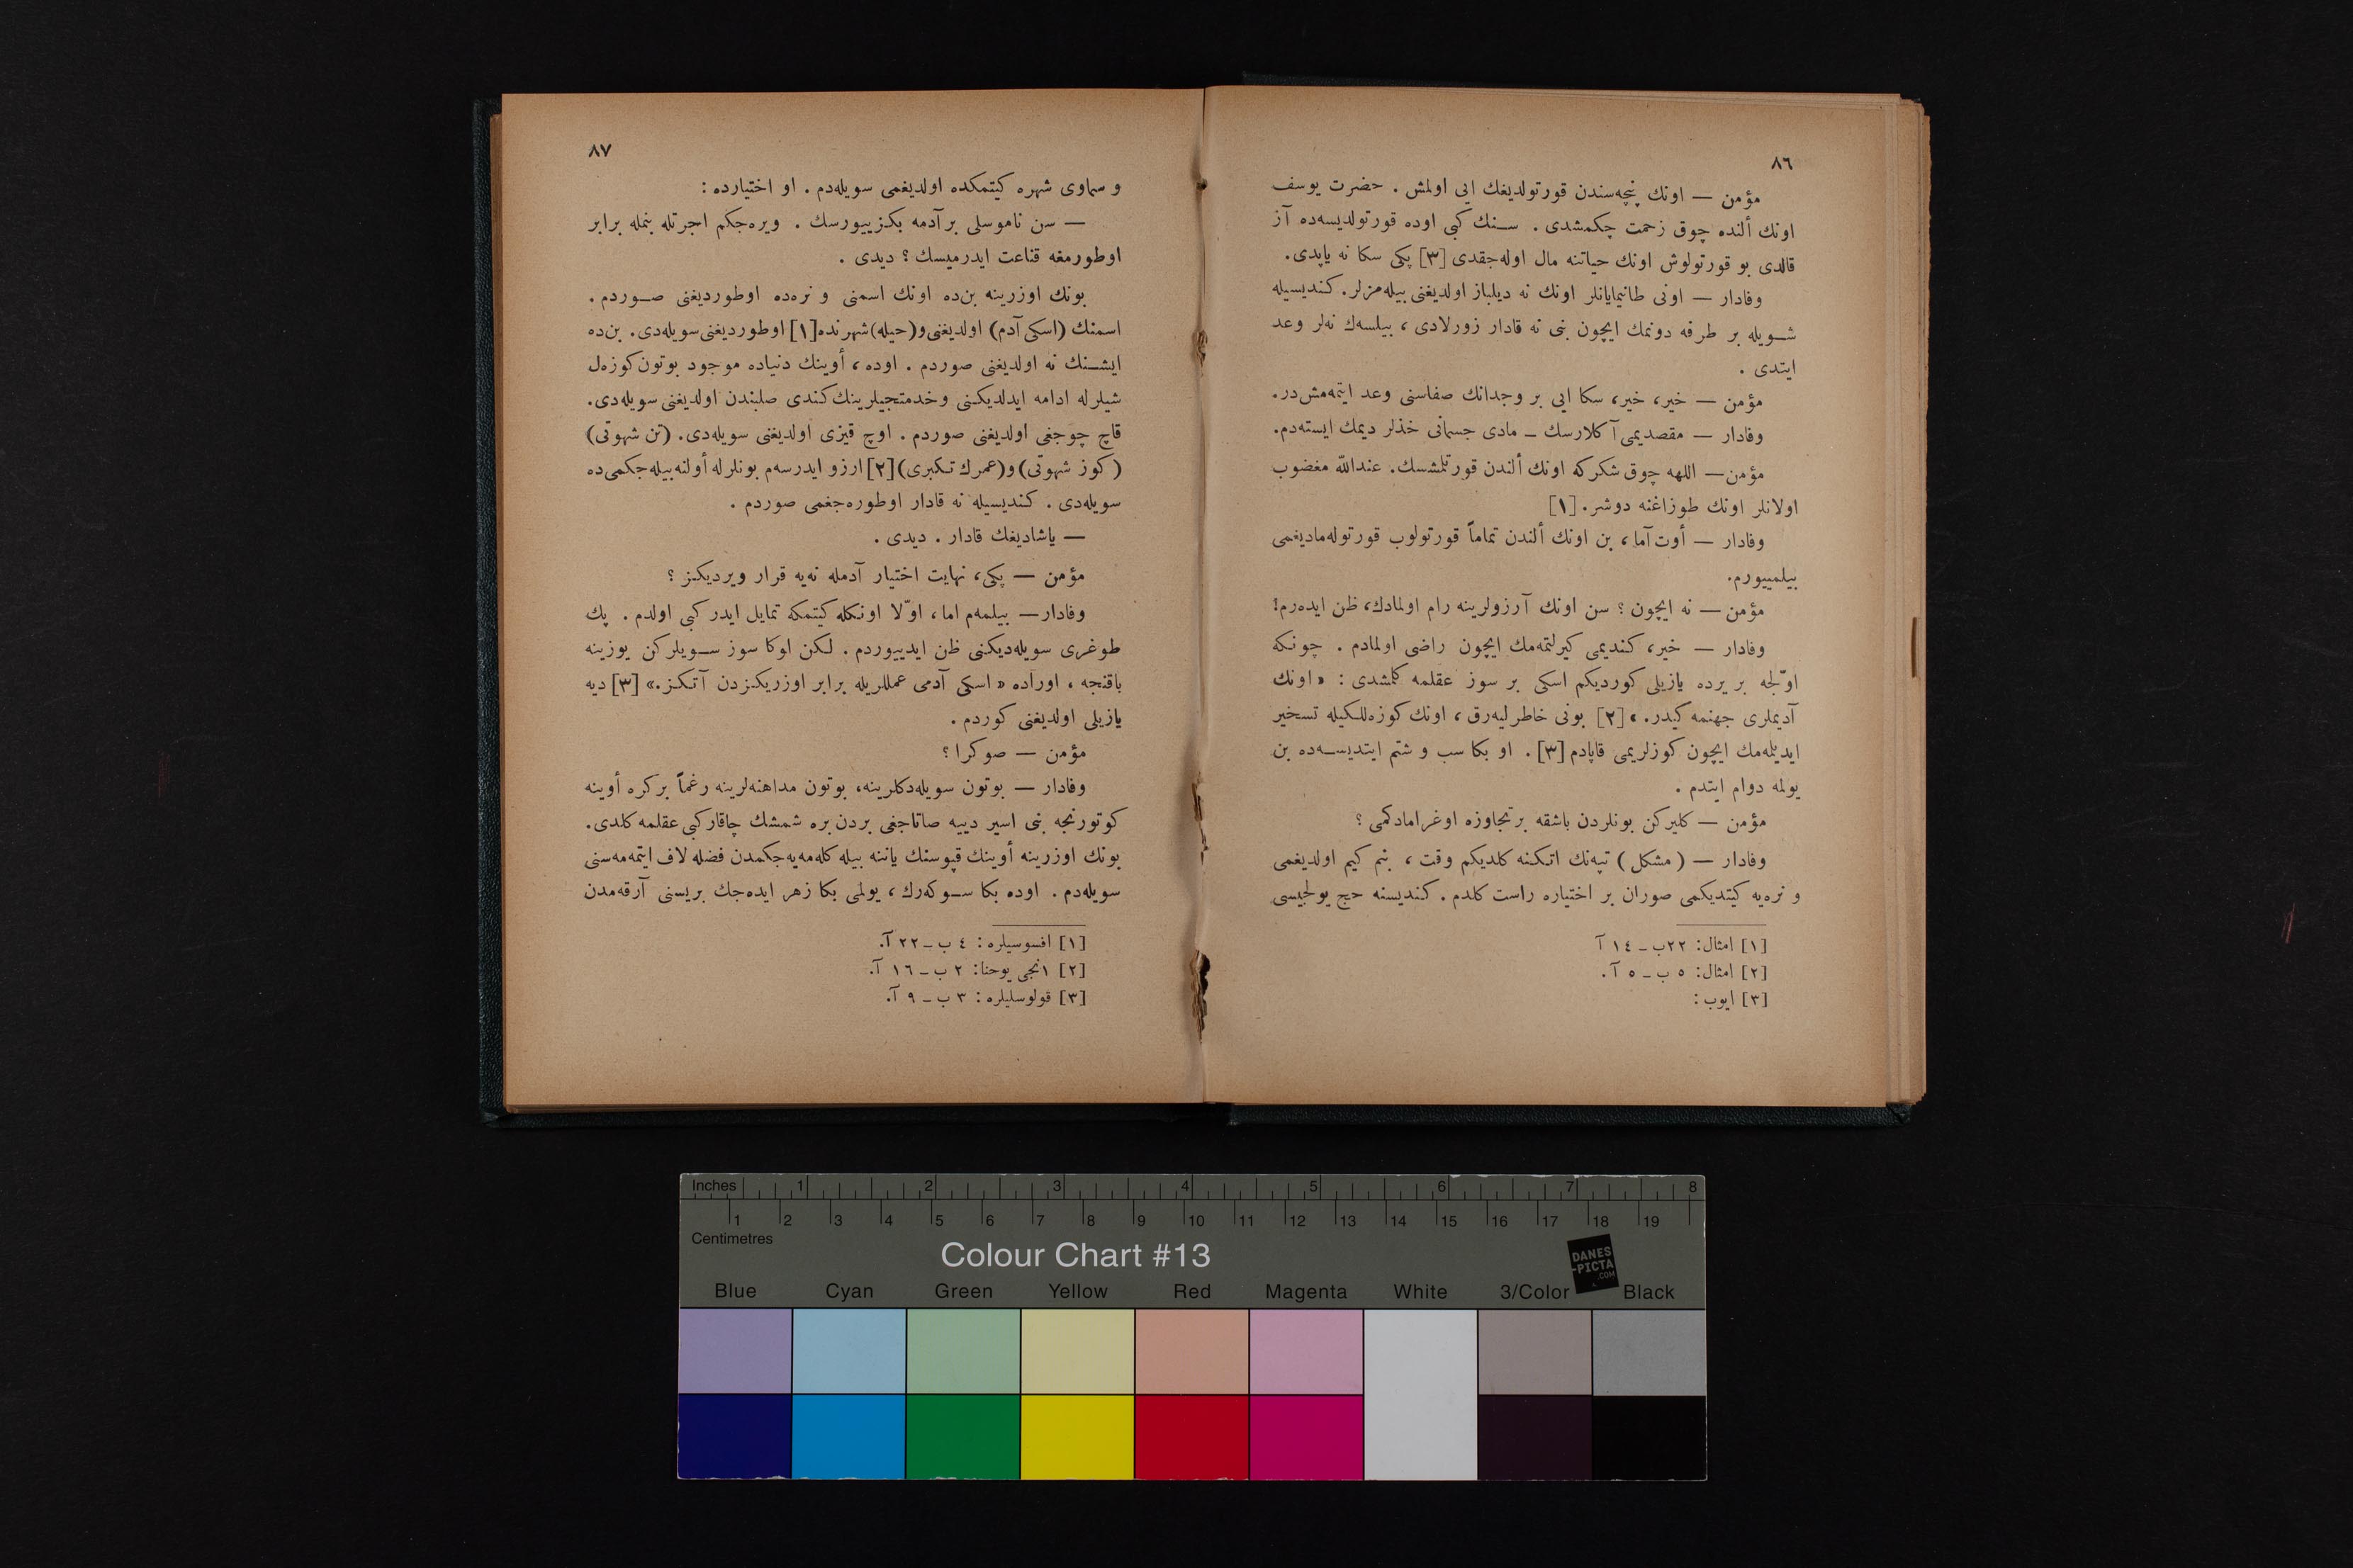 ٨٦
مؤمن — اونك پنچه‌سندن قورتولديغك ايى اولمش . حضرت يوسف
اونك ألنده چوق زحمت چكمشدى . سنك كبى اوده قورتولديسه‌ده آز
قالدى بو قورتولوش اونك حياتنه مال اوله‌جقدى [٣] پكى سكا نه ياپدى.
وفادار — اونى طانيمايانلر اونك نه ديلباز اولديغنى بيله‌مزلر. كنديسيله
شويله بر طرفه دونمك ايچون بنى نه قادار زورلادى ، بيلسه‌ك نه‌لر وعد
ايتدى .
مؤمن — خير، خير، سكا ايى بر وجدانك صفاسنى وعد ايتمه‌مش‌در.
وفادار — مقصديمى آكلارسك ـ مادى جسمانى خذلر ديمك ايسته‌دم.
مؤمن — اللهه چوق شكركه اونك ألندن قورتلمشسك. عندالله مغضوب
اولانلر اونك طوزاغنه دوشر. [١]
وفادار — أوت آما ، بن اونك ألندن تماماً قورتولوب قورتوله‌ماديغمى
بيلمييورم.
مؤمن — نه ايچون ؟ سن اونك آرزولرينه رام اولمادك، ظن ايده‌رم!
وفادار — خير، كنديمى كيرلتمه‌مك ايچون راضى اولمادم . چونكه
اوّلجه بر يرده يازيلى كورديكم اسكى بر سوز عقلمه كلمشدى : « اونك
آديملرى جهنمه كيدر. » [٢] بونى خاطرليه‌رق ، اونك كوزه‌للكيله تسخير
ايديلمه‌مك ايچون كوزلريمى قاپادم [٣] . او بكا سب و شتم ايتديسه‌ده بن
يولمه دوام ايتدم .
مؤمن — كليركن بونلردن باشقه بر تجاوزه اوغرامادكمى ؟
وفادار — ( مشكل ) تپه‌نك اتكنه كلديكم وقت ، بنم كيم اولديغمى
و نره‌يه كيتديكمى صوران بر اختياره راست كلدم . كنديسنه حج يولجيسى
[١] امثال: ٢٢ب ـ ١٤ آ
[٢] امثال: ٥ ب ـ ٥ آ .
[٣] ايوب :
٨٧
و سماوى شهره كيتمكده اولديغمى سويله‌دم . او اختيارده :
— سن ناموسلى بر آدمه بكزييورسك . ويره‌جكم اجرتله بنمله برابر
اوطورمغه قناعت ايدرميسك ؟ ديدى .
بونك اوزرينه بن‌ده اونك اسمنى و نره‌ده اوطورديغنى صوردم .
اسمنك (اسكى آدم) اولديغنى و(حيله) شهرنده [١] اوطورديغنى سويله‌دى. بن‌ده
ايشنك نه اولديغنى صوردم . اوده ، أوينك دنياده موجود بوتون كوزه‌ل
شيلرله ادامه ايدلديكنى وخدمتجيلرينك كندى صلبندن اولديغنى سويله‌دى.
قاچ چوجغى اولديغنى صوردم . اوچ قيزى اولديغنى سويله‌دى. (تن شهوتى)
(كوز شهوتى) و(عمرك تكبرى) [٢] ارزو ايدرسه‌م بونلرله أولنه‌بيله‌جكمى‌ده
سويله‌دى . كنديسيله نه قادار اوطوره‌جغمى صوردم .
— ياشاديغك قادار . ديدى .
مؤمن — پكى، نهايت اختيار آدمله نه‌يه قرار ويرديكز ؟
وفادار — بيلمه‌م اما ، اوّلا اونكله كيتمكه تمايل ايدر كبى اولدم . پك
طوغرى سويله‌ديكنى ظن ايدييوردم . لكن اوكا سوز سويلركن يوزينه
باقنجه ، اوراده « اسكى آدمى عمللريله برابر اوزريكزدن آتكز.» [٣] ديه
يازيلى اولديغنى كوردم .
مؤمن — صوكرا ؟
وفادار — بوتون سويله‌دكلرينه، بوتون مداهنه‌لرينه رغماً بر كره أوينه
كوتورنجه بنى اسير دييه صاتاجغى بردن بره شمشك چاقار كبى عقلمه كلدى.
بونك اوزرينه أوينك قپوسنك ياننه بيله كله‌مه‌يه‌جكمدن فضله لاف ايتمه‌مه‌سنى
سويله‌دم . اوده بكا سوكه‌رك ، يولمى بكا زهر ايده‌جك بريسنى آرقه‌مدن
[١] افسوسيلره : ٤ ب ـ ٢٢ آ.
[٢] ١نجى يوحنا: ٢ ب ـ ١٦ آ.
[٣] قولوسليلره : ٣ ب ـ ٩ آ.
Inches 1 2 3 4 5 6 7 8
1 2 3 4 5 6 7 8 9 10 11 12 13 14 15 16 17 18 19
Centimetres
Colour Chart #13
DANES
-PICTA
.COM
Blue Cyan Green Yellow Red Magenta White 3/Color Black